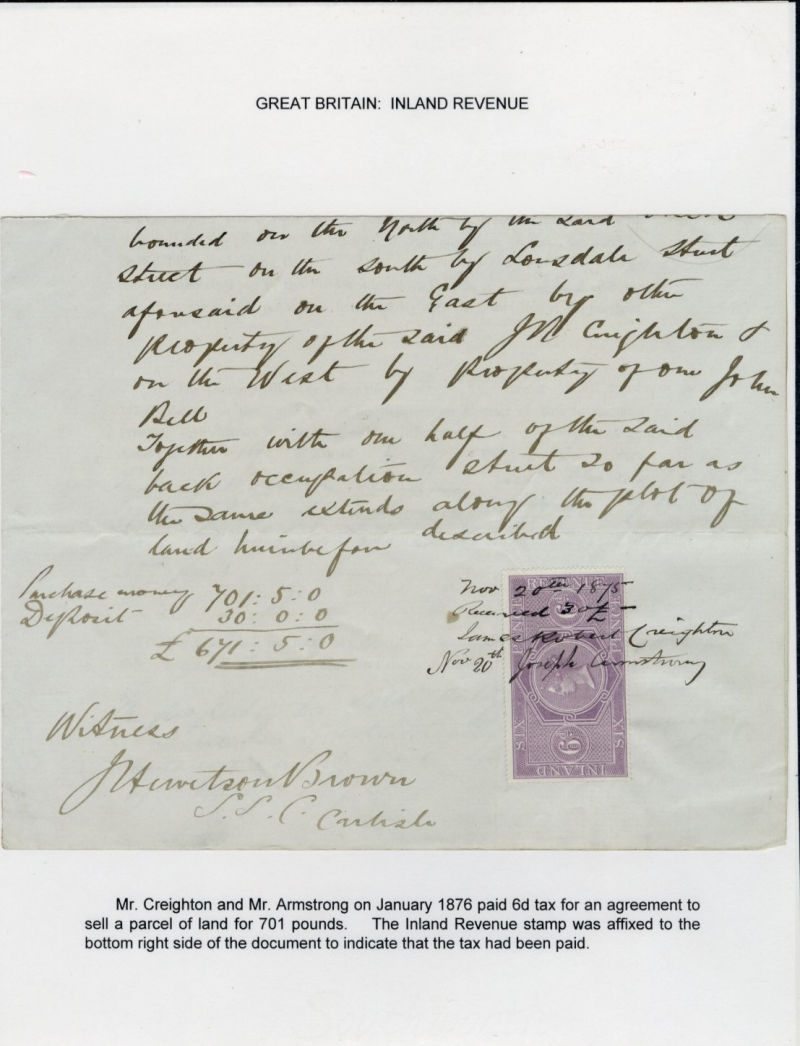 GREAT BRITAIN: INLAND REVENUE
bounded on the North by the said
Street on the South by Lonsdale Street
aforesaid on the East by other
property of the said J R Creighton &
on the West by property of one John
Bell
Together with one half of the said
back occupation street so far as
the same extends along the plot of
land hereinbefore described
Purchase money 701: 5: 0
Deposit 30: 0: 0
£ 671: 5: 0
Nov 20th 1875
Received 30£
James Robert Creighton
Nov 20th Joseph Armstrong
REVENUE
SIX
6D
SIX
6D
INLAND
Witness
J Hewetson Brown
S. S. C. Carlisle
Mr. Creighton and Mr. Armstrong on January 1876 paid 6d tax for an agreement to
sell a parcel of land for 701 pounds. The Inland Revenue stamp was affixed to the
bottom right side of the document to indicate that the tax had been paid.